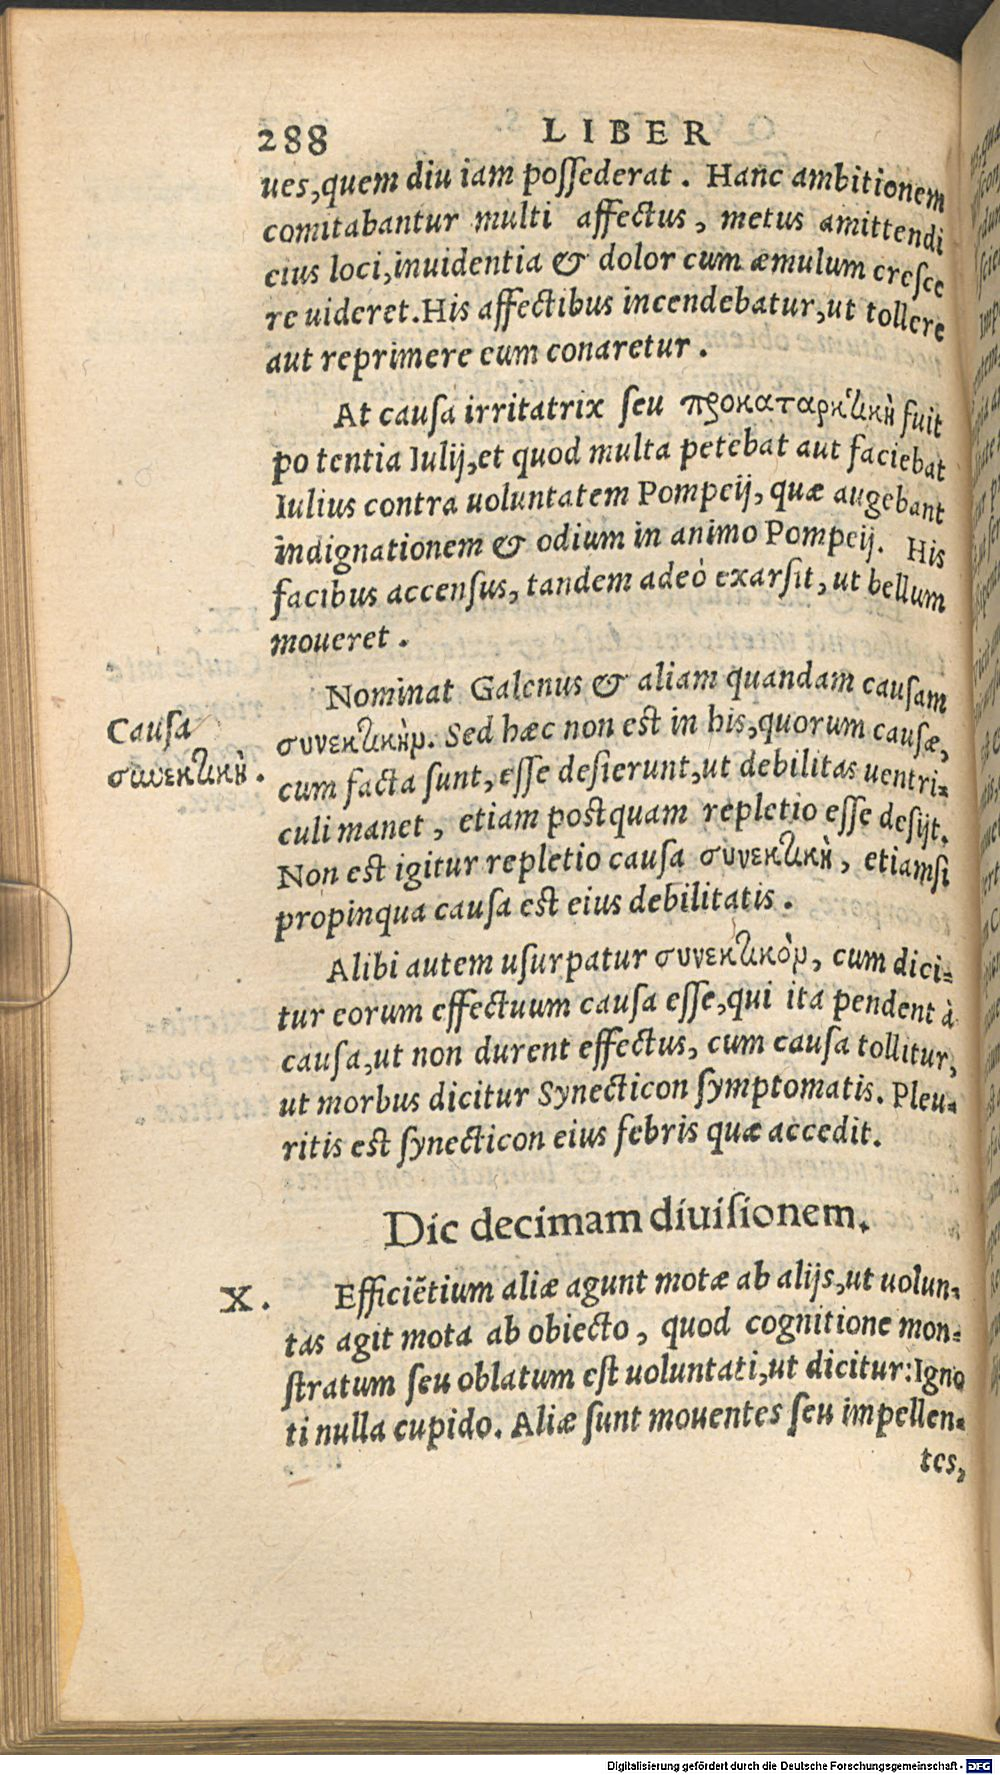 288 LIBER
ues,quem diu iam possederat. Hanc ambitionem
comitabantur multi affectus, metus amittendi
eius loci,inuidentia & dolor cum æmulum cresce
re uideret.His affectibus incendebatur,ut tollere
aut reprimere eum conaretur.
At causa irritatrix seu προκαταρκτικὴ fuit
po tentia Iulij,et quod multa petebat aut faciebat
Iulius contra uoluntatem Pompeij, quæ augebant
indignationem & odium in animo Pompeij. His
facibus accensus, tandem adeò exarsit, ut bellum
moueret.
Nominat Galenus & aliam quandam causam
Causa
συνεκτικὴν. Sed hæc non est in his,quorum causæ,
συνεκτικὴ.
cum facta sunt, esse desierunt,ut debilitas uentri-
culi manet, etiam postquam repletio esse desijt.
Non est igitur repletio causa συνεκτικὴ, etiamsi
propinqua causa est eius debilitatis.
Alibi autem usurpatur συνεκτικὸν, cum dici-
tur eorum effectuum causa esse,qui ita pendent à
causa,ut non durent effectus, cum causa tollitur,
ut morbus dicitur Synecticon symptomatis. Pleu-
ritis est synecticon eius febris quæ accedit.
Dic decimam diuisionem.
X. Efficiẽtium aliæ agunt motæ ab alijs,ut uolun-
tas agit mota ab obiecto, quod cognitione mon-
stratum seu oblatum est uoluntati,ut dicitur:Igno
ti nulla cupido. Aliæ sunt mouentes seu impellen-
tes,
Digitalisierung gefördert durch die Deutsche Forschungsgemeinschaft - DFG